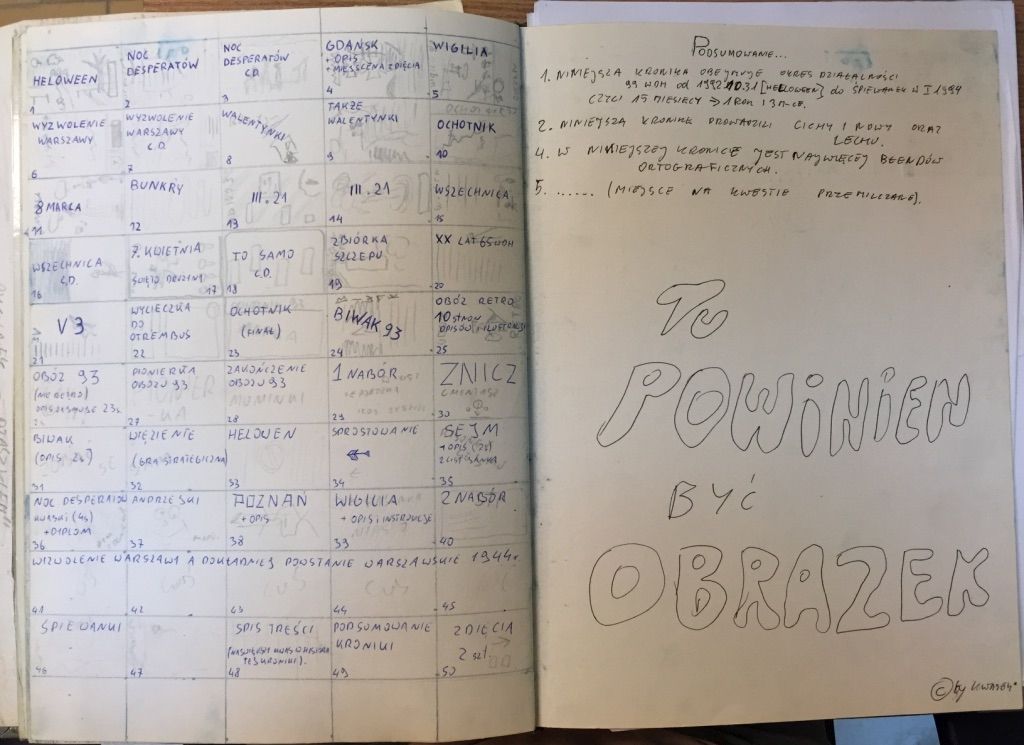 HELOWEEN
1
NOC
DESPERATÓW
2
NOC
DESPERATÓW
C.D.
3
GDAŃSK
+ OPIS
+ MIEJSCE NA ZDJĘCIA
4
WIGILIA
5
WYZWOLENIE
WARSZAWY
6
WYZWOLENIE
WARSZAWY
C.D.
7
WALENTYNKI
8
TAKŻE
WALENTYNKI
9
OCHOTNIK
10
8 MARCA
11
BUNKRY
12
III.21
13
III.21
14
WSZECHNICA
15
WSZECHNICA
C.D.
16
7. KWIETNIA
ŚWIĘTO DRUŻYNY
17
TO SAMO
C.D.
18
ZBIÓRKA
SZCZEPU
19
XX LAT 65 WDH
20
V 3
21
WYCIECZKA
DO
OTREMBUS
22
OCHOTNIK
(FINAŁ)
23
BIWAK 93
24
OBÓZ RETRO
10 stron
OPISÓW I ILUSTRACJI
25
OBÓZ 93
(NIE RETRO)
PIONIERKA
OBOZU 93
27
ZAKOŃCZENIE
OBOZU 93
MUMINKI
28
1 NABÓR
29
ZNICZ
CMENTARZ
30
BIWAK
(OPIS 2s)
31
WIĘZIENIE
(GRA STRATEGICZNA)
32
HELOWEN
33
SPROSTOWANIE
34
SEJM
+ OPIS (2s)
35
NOC DESPERATÓW
+ DIPLOM
36
ANDRZEJKI
37
POZNAŃ
+ OPIS
38
WIGILIA
+ OPIS I INSTRUKCJE
39
2 NABÓR
40
WIZWOLENIE WARSZAWY A DOKŁADNIEJ POWSTANIE WARSZAWSKIE 1944r.
41
42
43
44
45
ŚPIEWANKI
46
47
SPIS TREŚCI
TEJ KRONIKI).
48
PODSUMOWANIE
KRONIKI
49
ZDJĘCIA
2 szt.
50
PODSUMOWANIE...
1. NINIEJSZA KRONIKA OBEJMUJE OKRES DZIAŁALNOŚCI
99 WDH od 1992.10.31 [HELLOWEEN] do ŚPIEWANEK W I 1994
CZYLI 15 MIESIĘCY => 1 ROK I 3 M-CE.
2. NINIEJSZĄ KRONIKĘ PROWADZILI CICHY I NOWY ORAZ
LECHU.
4. W NINIEJSZEJ KRONICE JEST NAJWIĘCEJ BŁENDÓW
ORTOGRAFICZNYCH.
5. ...... (MIEJSCE NA KWESTIE PRZEMILCZANE).
TU
POWINIEN
BYĆ
OBRAZEK
© by KWASEK